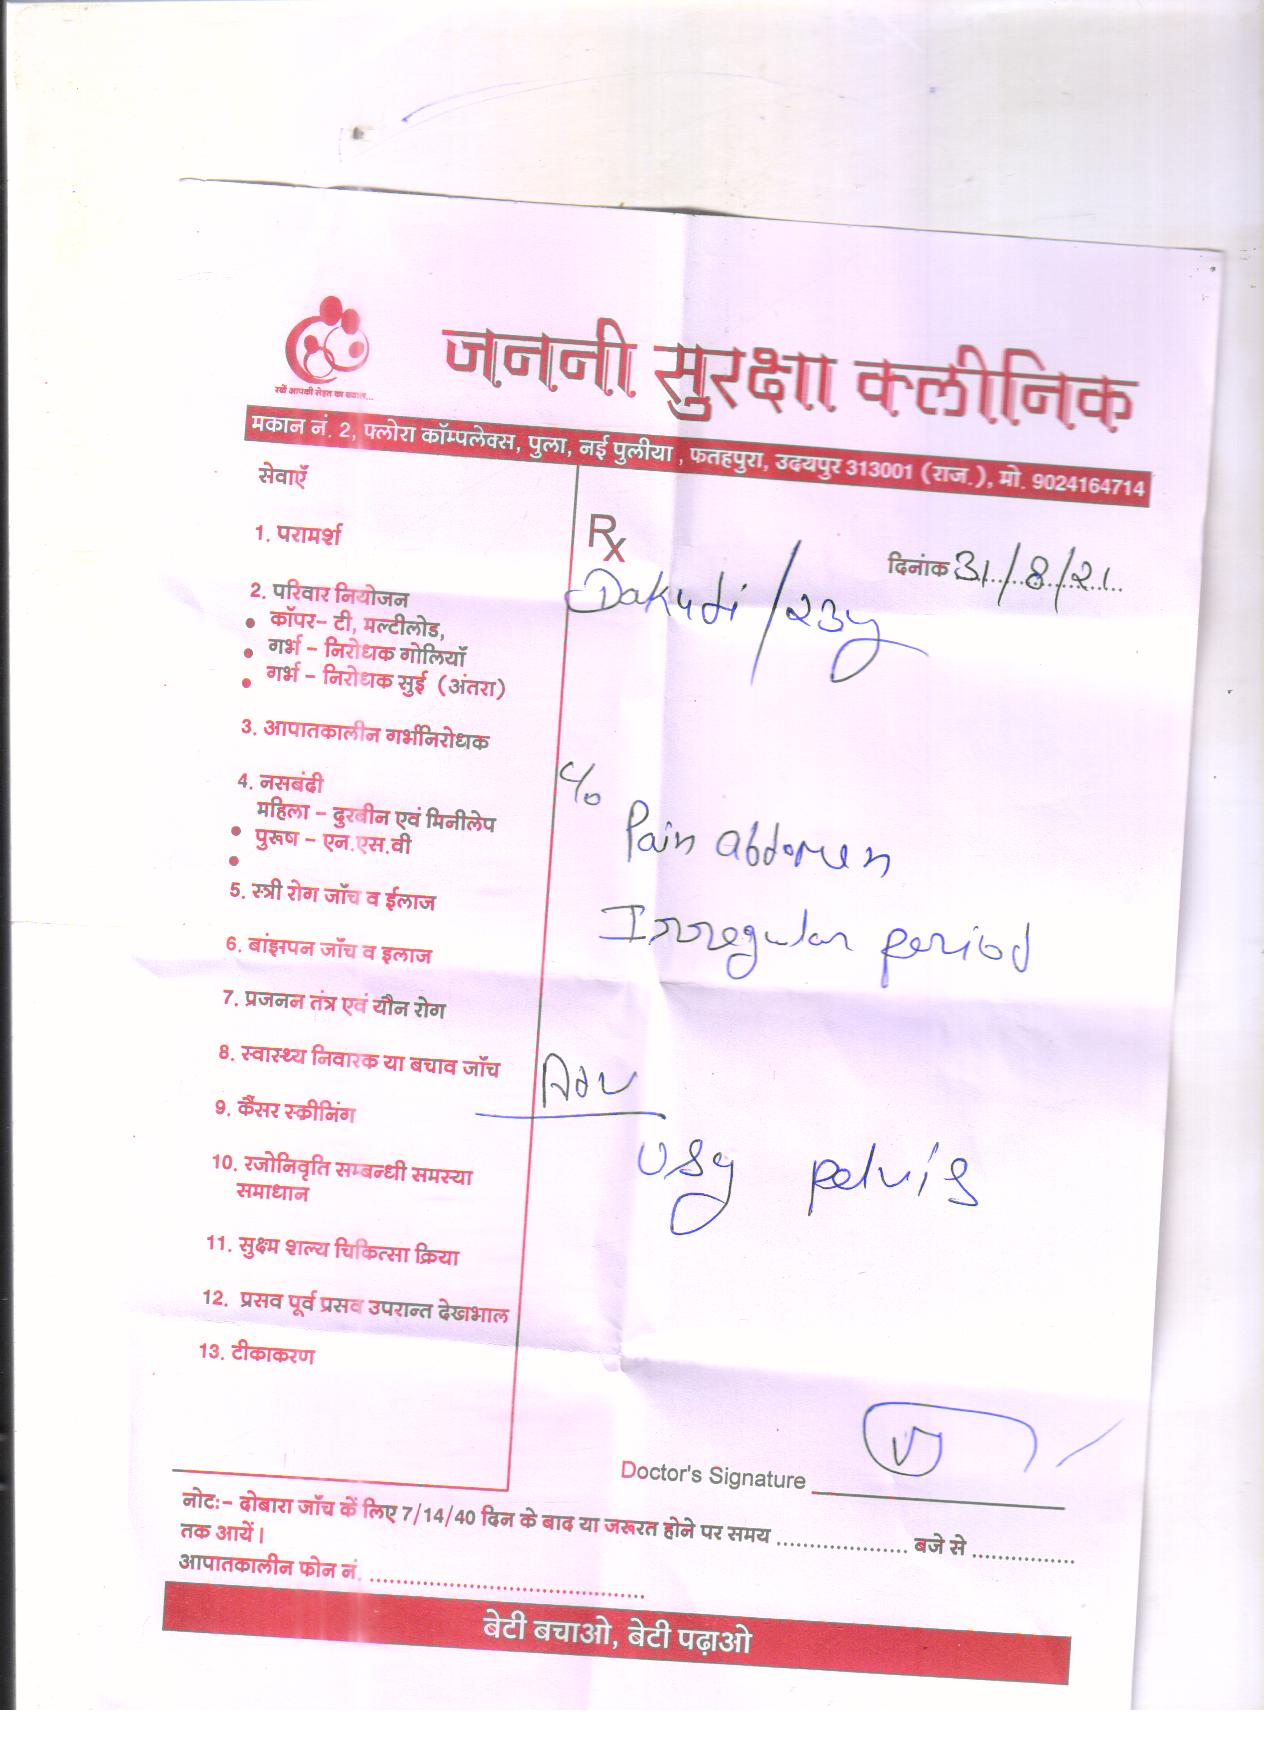 जननी सुरक्षा क्लीनिक
रखें आपकी सेहत का ख्याल...
मकान नं. 2, फ्लोरा कॉम्पलेक्स, पुला, नई पुलीया , फतहपुरा, उदयपुर 313001 (राज.), मो. 9024164714
सेवाएँ
1. परामर्श
2. परिवार नियोजन
• कॉपर– टी, मल्टीलोड,
• गर्भ – निरोधक गोलियाँ
• गर्भ – निरोधक सुई (अंतरा)
3. आपातकालीन गर्भनिरोधक
4. नसबंदी
महिला – दुरबीन एवं मिनीलेप
• पुरूष – एन.एस.वी
•
5. स्त्री रोग जाँच व ईलाज
6. बांझपन जाँच व इलाज
7. प्रजनन तंत्र एवं यौन रोग
8. स्वास्थ्य निवारक या बचाव जाँच
9. कैंसर स्क्रीनिंग
10. रजोनिवृति सम्बन्धी समस्या
समाधान
11. सुक्ष्म शल्य चिकित्सा क्रिया
12. प्रसव पूर्व प्रसव उपरान्त देखभाल
13. टीकाकरण
Rx
दिनांक 31/8/21
/23y
c/o
Pain abdomen
Irregular period
Adv
USg pelvis
Doctor's Signature
नोट:– दोबारा जाँच कें लिए 7/14/40 दिन के बाद या जरूरत होने पर समय .................... बजे से ................
तक आयें।
आपातकालीन फोन नं. ..........................................
बेटी बचाओ, बेटी पढ़ाओ